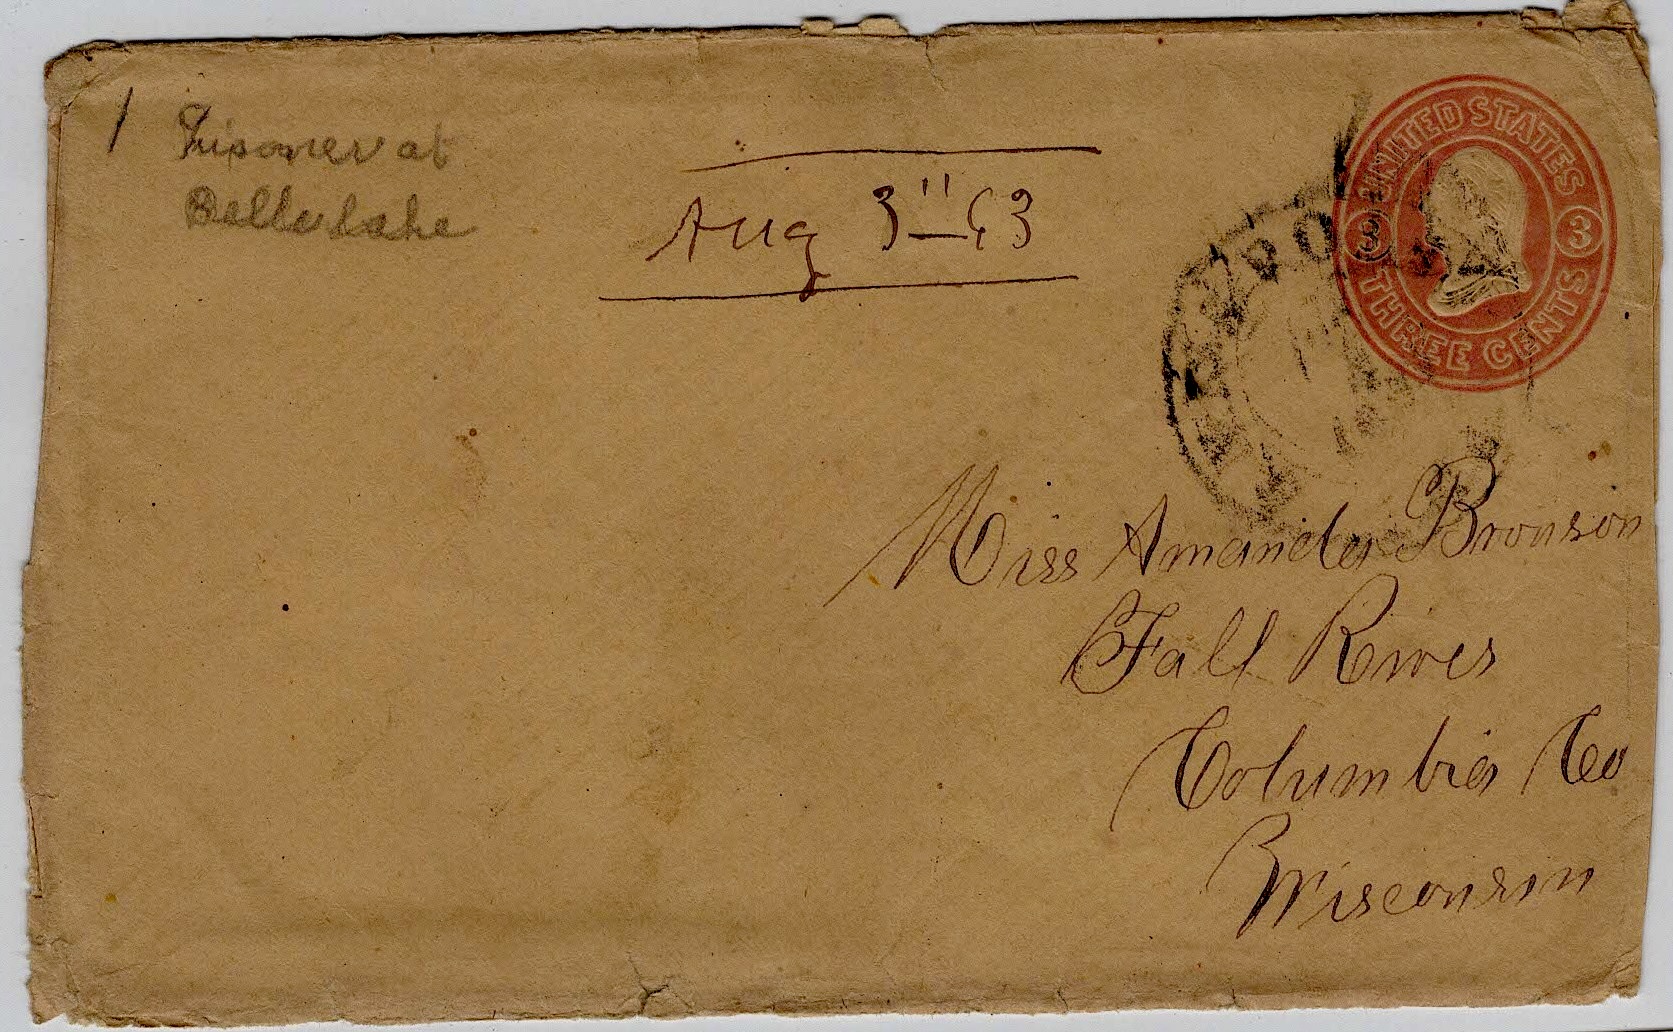 / Prisoner at
Belle Lake
Aug 3" 63
UNITED STATES
3 3
THREE CENTS
Miss Amanda Bronson
Fall River
Columbia Co
Wisconsin